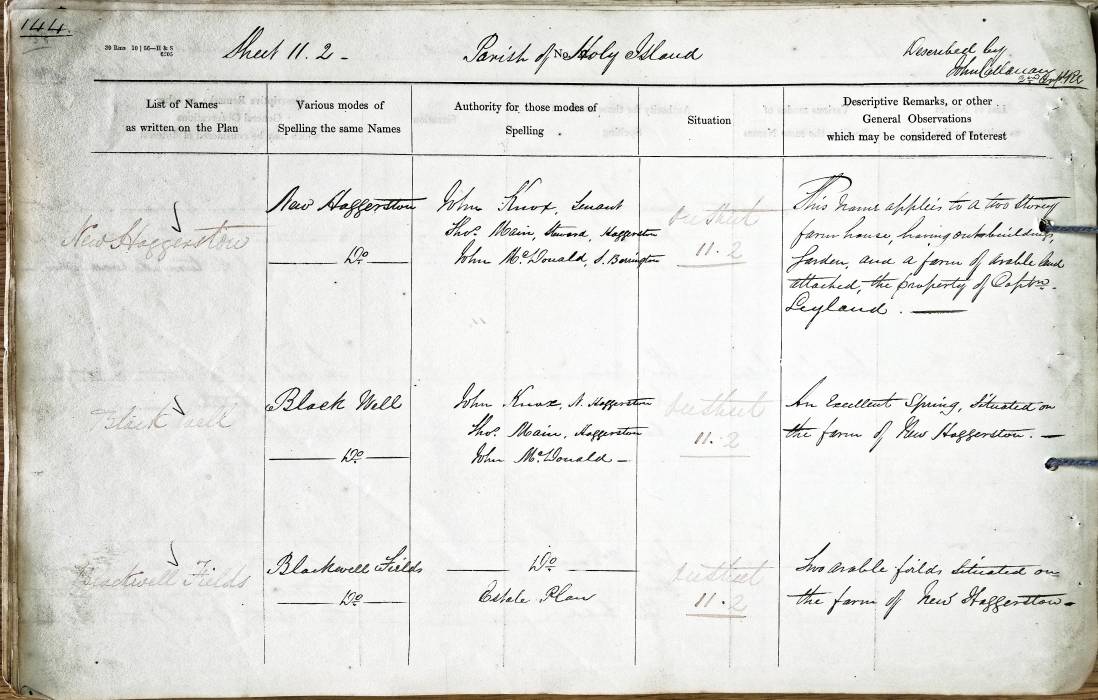 144.
Sheet 11.2 -
Parish of No. Holy Island
Described by
John
List of Names
as written on the Plan
Various modes of
Spelling the same Names
Authority for those modes of
Spelling
Situation
Descriptive Remarks, or other
General Observations
which may be considered of Interest
New Haggerston
New Haggerston
Do
John Knox, Tenant
Thos. Main, Steward, Haggerston
John McDonald, S. Berrington
See sheet
11.2
This name applies to a two storey
farm house, having outobuildings,
Garden, and a farm of arable land
attached, the property of Captn.
Leyland. —
Black Well
Black Well
Do
John Knox, N. Haggerston
Thos. Main, Haggerston
John McDonald —
See sheet
11.2
An Excellent Spring, situated on
the farm of New Haggerston. —
Blackwell Fields
Blackwell Fields
Do
Do
Estate Plan
See sheet
11.2
Two arable fields situated on
the farm of New Haggerston -